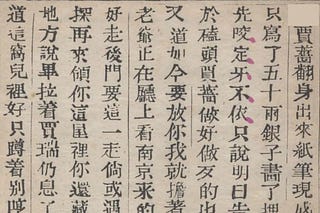 賈薔翻身出來紙筆現成
只寫了五十兩銀子畫了押
先咬定牙不依只說明日告
於磕頭賈薔做好做歹的也
又道如今要放你我就擔着
老爺正在廳上看南京來的
好走後門要這一走倘或遇
探再來領你這屋裡你還藏
地方說畢拉着賈瑞仍息了
道這窩兒裡好只蹲着別